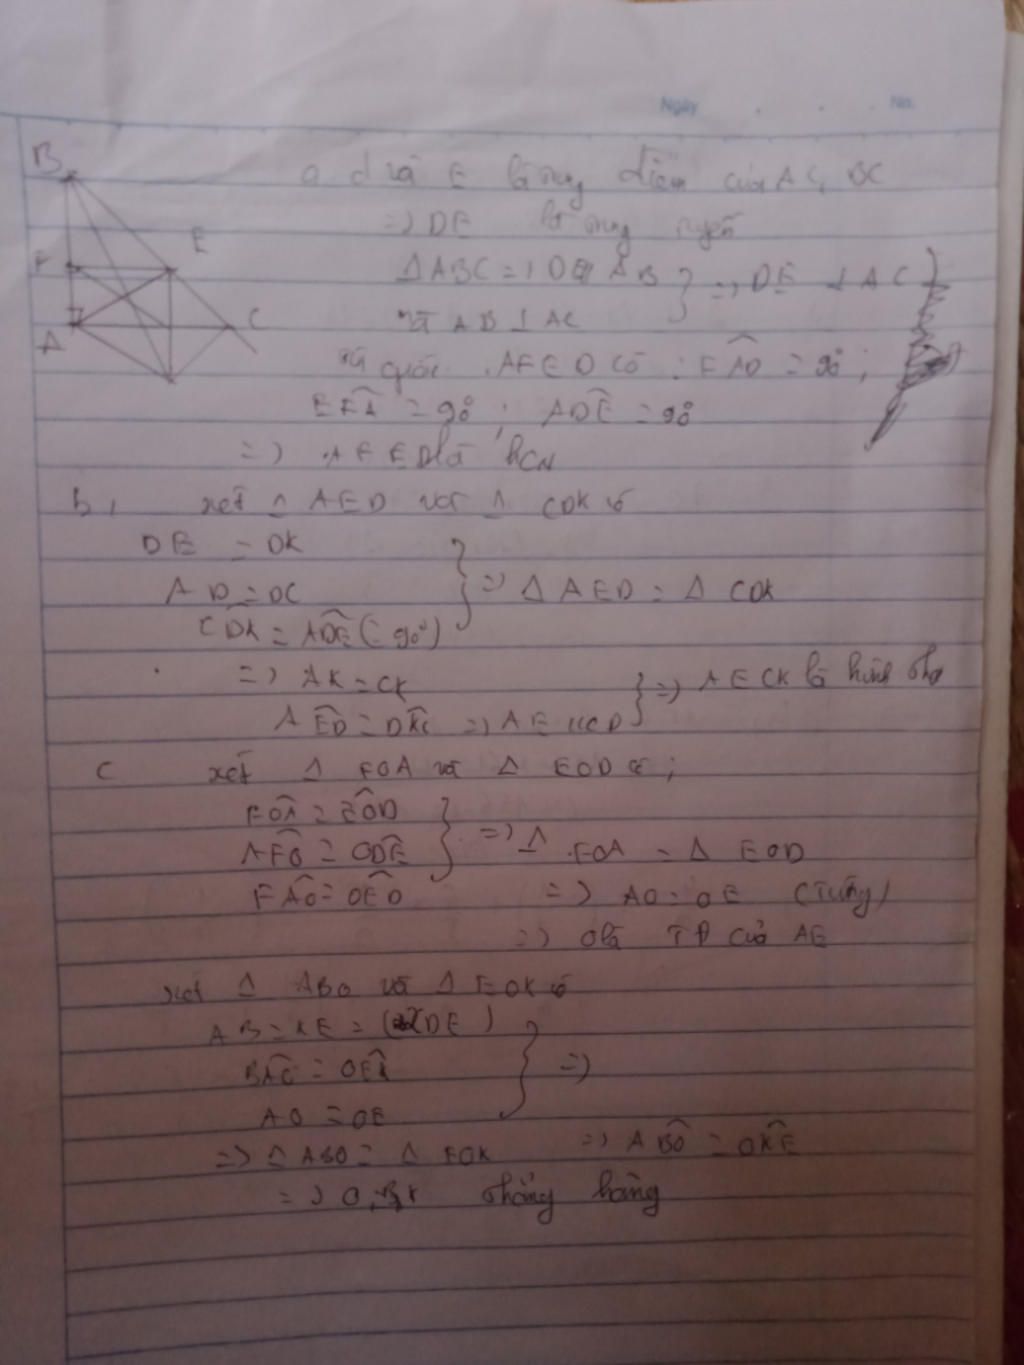 Ngày . . . No.
B
E
F
C
A
a d và E là trung điểm của AC, BC
=> DE là trung tuyến
ΔABC => DE // AB } => DE ⊥ AC
mà AB ⊥ AC
Tứ giác AFED có : FAD = 90° ;
EFA = 90° ; ADE = 90°
=> AFED là hCN
B, xét Δ AED với Δ CDK có
DE = DK
AD = DC } => Δ AED = Δ CDK
CDK = ADE (= 90°)
=> AK = CK } => AECK là hình thoi
AED = DKC => AE // CD
C xét Δ FOA và Δ EOD có ;
FOA = EOD
AFO = ODE } => Δ FOA = Δ EOD
FAO = OED => AO = OE (Tứng)
=> O là TĐ của AE
xét Δ ABO và Δ EOK có
AB = KE = (2DE)
BAO = OEK } =>
AO = OE
=> Δ ABO = Δ EOK => ABO = OKE
=> O, B, K thẳng hàng